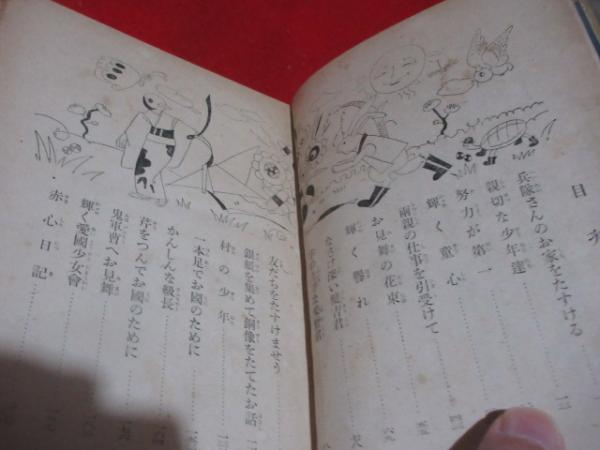 目次
兵隊さんのお家をたすける
親切な少年達
努力が第一
輝く童心
兩親の仕事を引受けて
お見舞の花束
輝く譽れ
なさけ深い
友だちをたすけませう
銀紙を集めて銅像をたてたお話
村の少年
一本足でお國のために
かんしんな級長
芹をつんでお國のために
鬼軍曹へお見舞
輝く愛國少女會
赤心日記